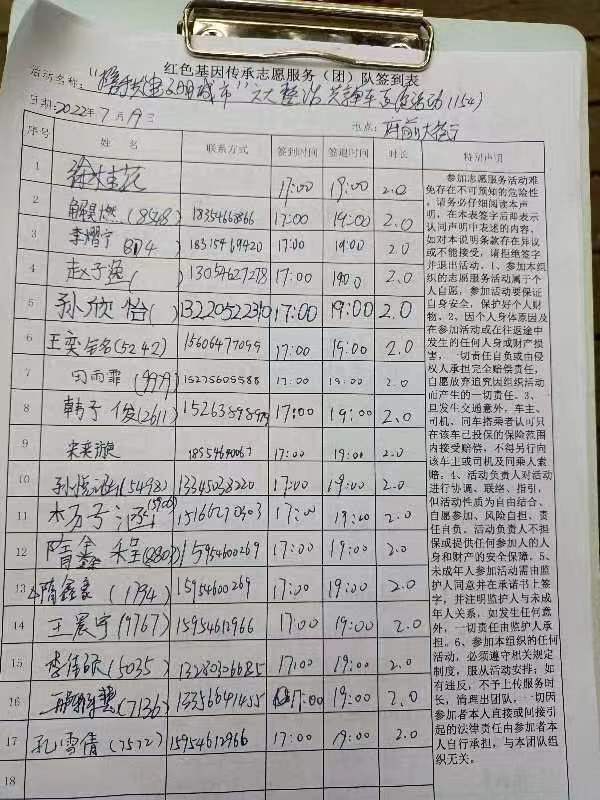 红色基因传承志愿服务（团）队签到表
活动名称：
日期：2022年7月19日 地点：府前大街
序号 姓 名 联系方式 签到时间 签退时间 时长 特别声明
1 17:00 19:00 2.0
2 18354668866 17:00 19:00 2.0
3 李熠宁 18315469420 17:00 19:00 2.0
4 赵子逸 13054627278 17:00 1900 2.0
5 孙欣怡( ) 17:00 19:00 2.0
6 (5242) 15606477099 17:00 19:00 2.0
7 田雨霏 (9979) 15275605588 17:00 19:00 2.0
8 韩子俊(2611) 17:00 19:00 2.0
9 17:00 19:00 2.0
10 (5498) 13345038220 17:00 19:00 2.0
11 17:00 19:00 2.0
12 15954600269 17:00 19:00 2.0
13 隋鑫豪 (1794) 15954600269 17:00 19:00 2.0
14 王晨宇(9767) 15954612966 17:00 19:00 2.0
15 (5035) 13280306685 17:00 19:00 2.0
16 (7136) 13356641455 17:00 19:00 2.0
17 孔雪倩 (7572) 15954612966 17:00 19:00 2.0
18
参加志愿服务活动难
免存在不可预知的危险性
，请务必仔细阅读本声
明，在本表签字后即表示
认同声明中表述的内容，
如对本说明条款存在异议
或不能接受，请拒绝签字
并退出活动。1、参加本组
织的志愿服务活动属于个
人自愿，参加活动要保证
自身安全，保护好个人财
物。2、因个人身体原因及
在参加活动或在往返途中
发生的任何人身或财产损
害，一切责任自负或由侵
权人承担完全赔偿责任，
自愿放弃追究因组织活动
而产生的一切责任。3、一
旦发生交通意外，车主、
司机、同车搭乘者认可只
在该车已投保的保险范围
内接受赔偿，不得另行向
该车主或司机及同乘人索
赔。4、活动负责人对活动
进行协调、联络、指引，
但活动性质为自由结合、
自愿参加、风险自担、责
任自负，活动负责人不担
保或提供任何参加人的人
身和财产的安全保障。5、
未成年人参加活动需由监
护人同意并在承诺书上签
字，并注明监护人与未成
年人关系，如发生任何意
外，一切责任由监护人承
担。6、参加本组织的任何
活动，必须遵守机关规定
制度，服从活动安排；如
有违反，不予上传服务时
长，清理出团队，一切因
参加者本人直接或间接引
起的法律责任由参加者本
人自行承担，与本团队组
织无关。